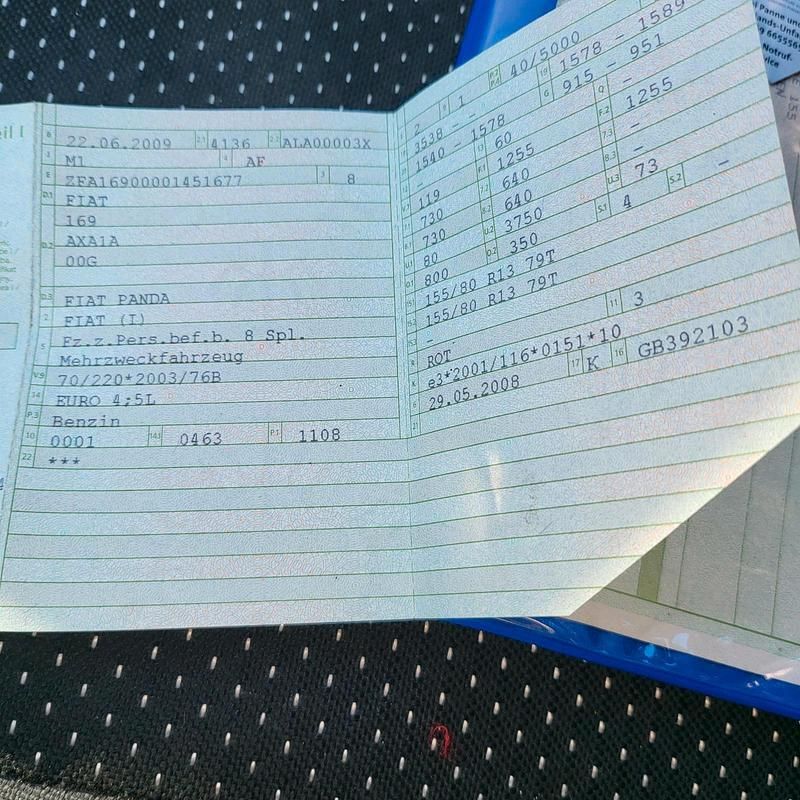 eil I
B 22.06.2009 2.1 4136 2.2 ALA00003X
J M1 4 AF
E ZFA16900001451677 3 8
D.1 FIAT
169
D.2 AXA1A
00G
D.3 FIAT PANDA
2 FIAT (I)
5 Fz.z.Pers.bef.b. 8 Spl.
Mehrzweckfahrzeug
V.9 70/220*2003/76B
14 EURO 4;5L
P.3 Benzin
10 0001 14.1 0463 P.1 1108
22 ***
2 1 40/5000
3538 - - 1578 - 1589
1540 - 1578 G 915 - 951
- 13 60 Q -
119 F.1 1255 F.2 1255
730 7.2 640 7.3 -
730 8.2 640 8.3 -
80 U.2 3750 U.3 73
800 O.2 350 S.1 4 S.2 -
155/80 R13 79T
155/80 R13 79T
-
R ROT 11 3
K e3*2001/116*0151*10
29.05.2008 17 K 16 GB392103
21
Panne un
ands-Unfa
Notruf.